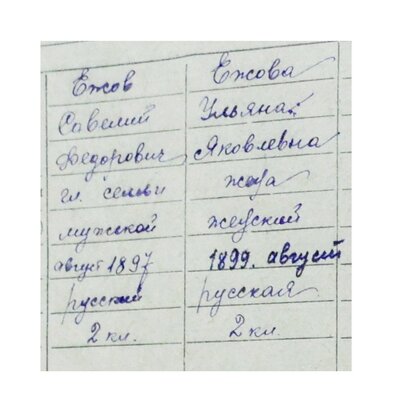 Ежов Ежова
Савелий Ульяна
Федорович Яковлевна
гл. семьи жена
мужской женский
август 1897 1899. август
русский русская
2 кл. 2 кл.